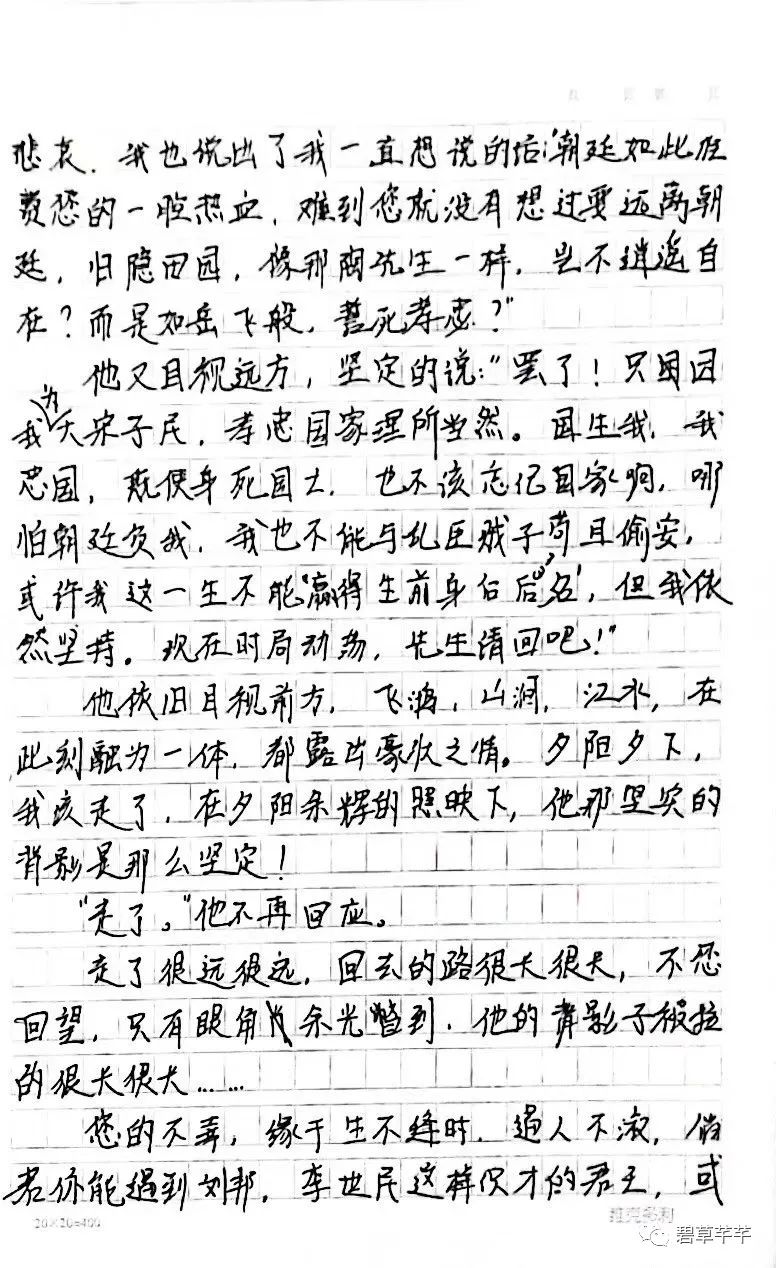 悲哀，我也说出了我一直想说的话:"朝廷如此在
费您的一腔热血，难到您就没有想过要远离朝
廷，归隐田园，像那陶先生一样，岂不逍遥自
在？而是如岳飞般，誓死孝忠？"
他又目视远方，坚定的说："罢了！只因因
我为大宋子民，孝忠国家理所当然。国生我，我
忠国，既使身死国土，也不该忘记国家啊，哪
怕朝廷负我，我也不能与乱臣贼子苟且偷安，
或许我这一生不能'赢得生前身后名'，但我依
然坚持。现在时局动荡，先生请回吧！"
他依旧目视前方，飞鸿，山涧，江水，在
此刻融为一体，都露出豪放之情。夕阳夕下，
我该走了，在夕阳余辉的照映下，他那坚实的
背影是那么坚定！
"走了。"他不再回应。
走了很远很远，回去的路很长很长，不忍
回望，只有眼角余光瞥到，他的背影子被拉
的很长很长……
您的不幸，缘于生不逢时，遇人不淑，倘
若你能遇到刘邦，李世民这样识才的君王，或
20×20=400
维克多利
碧草芊芊